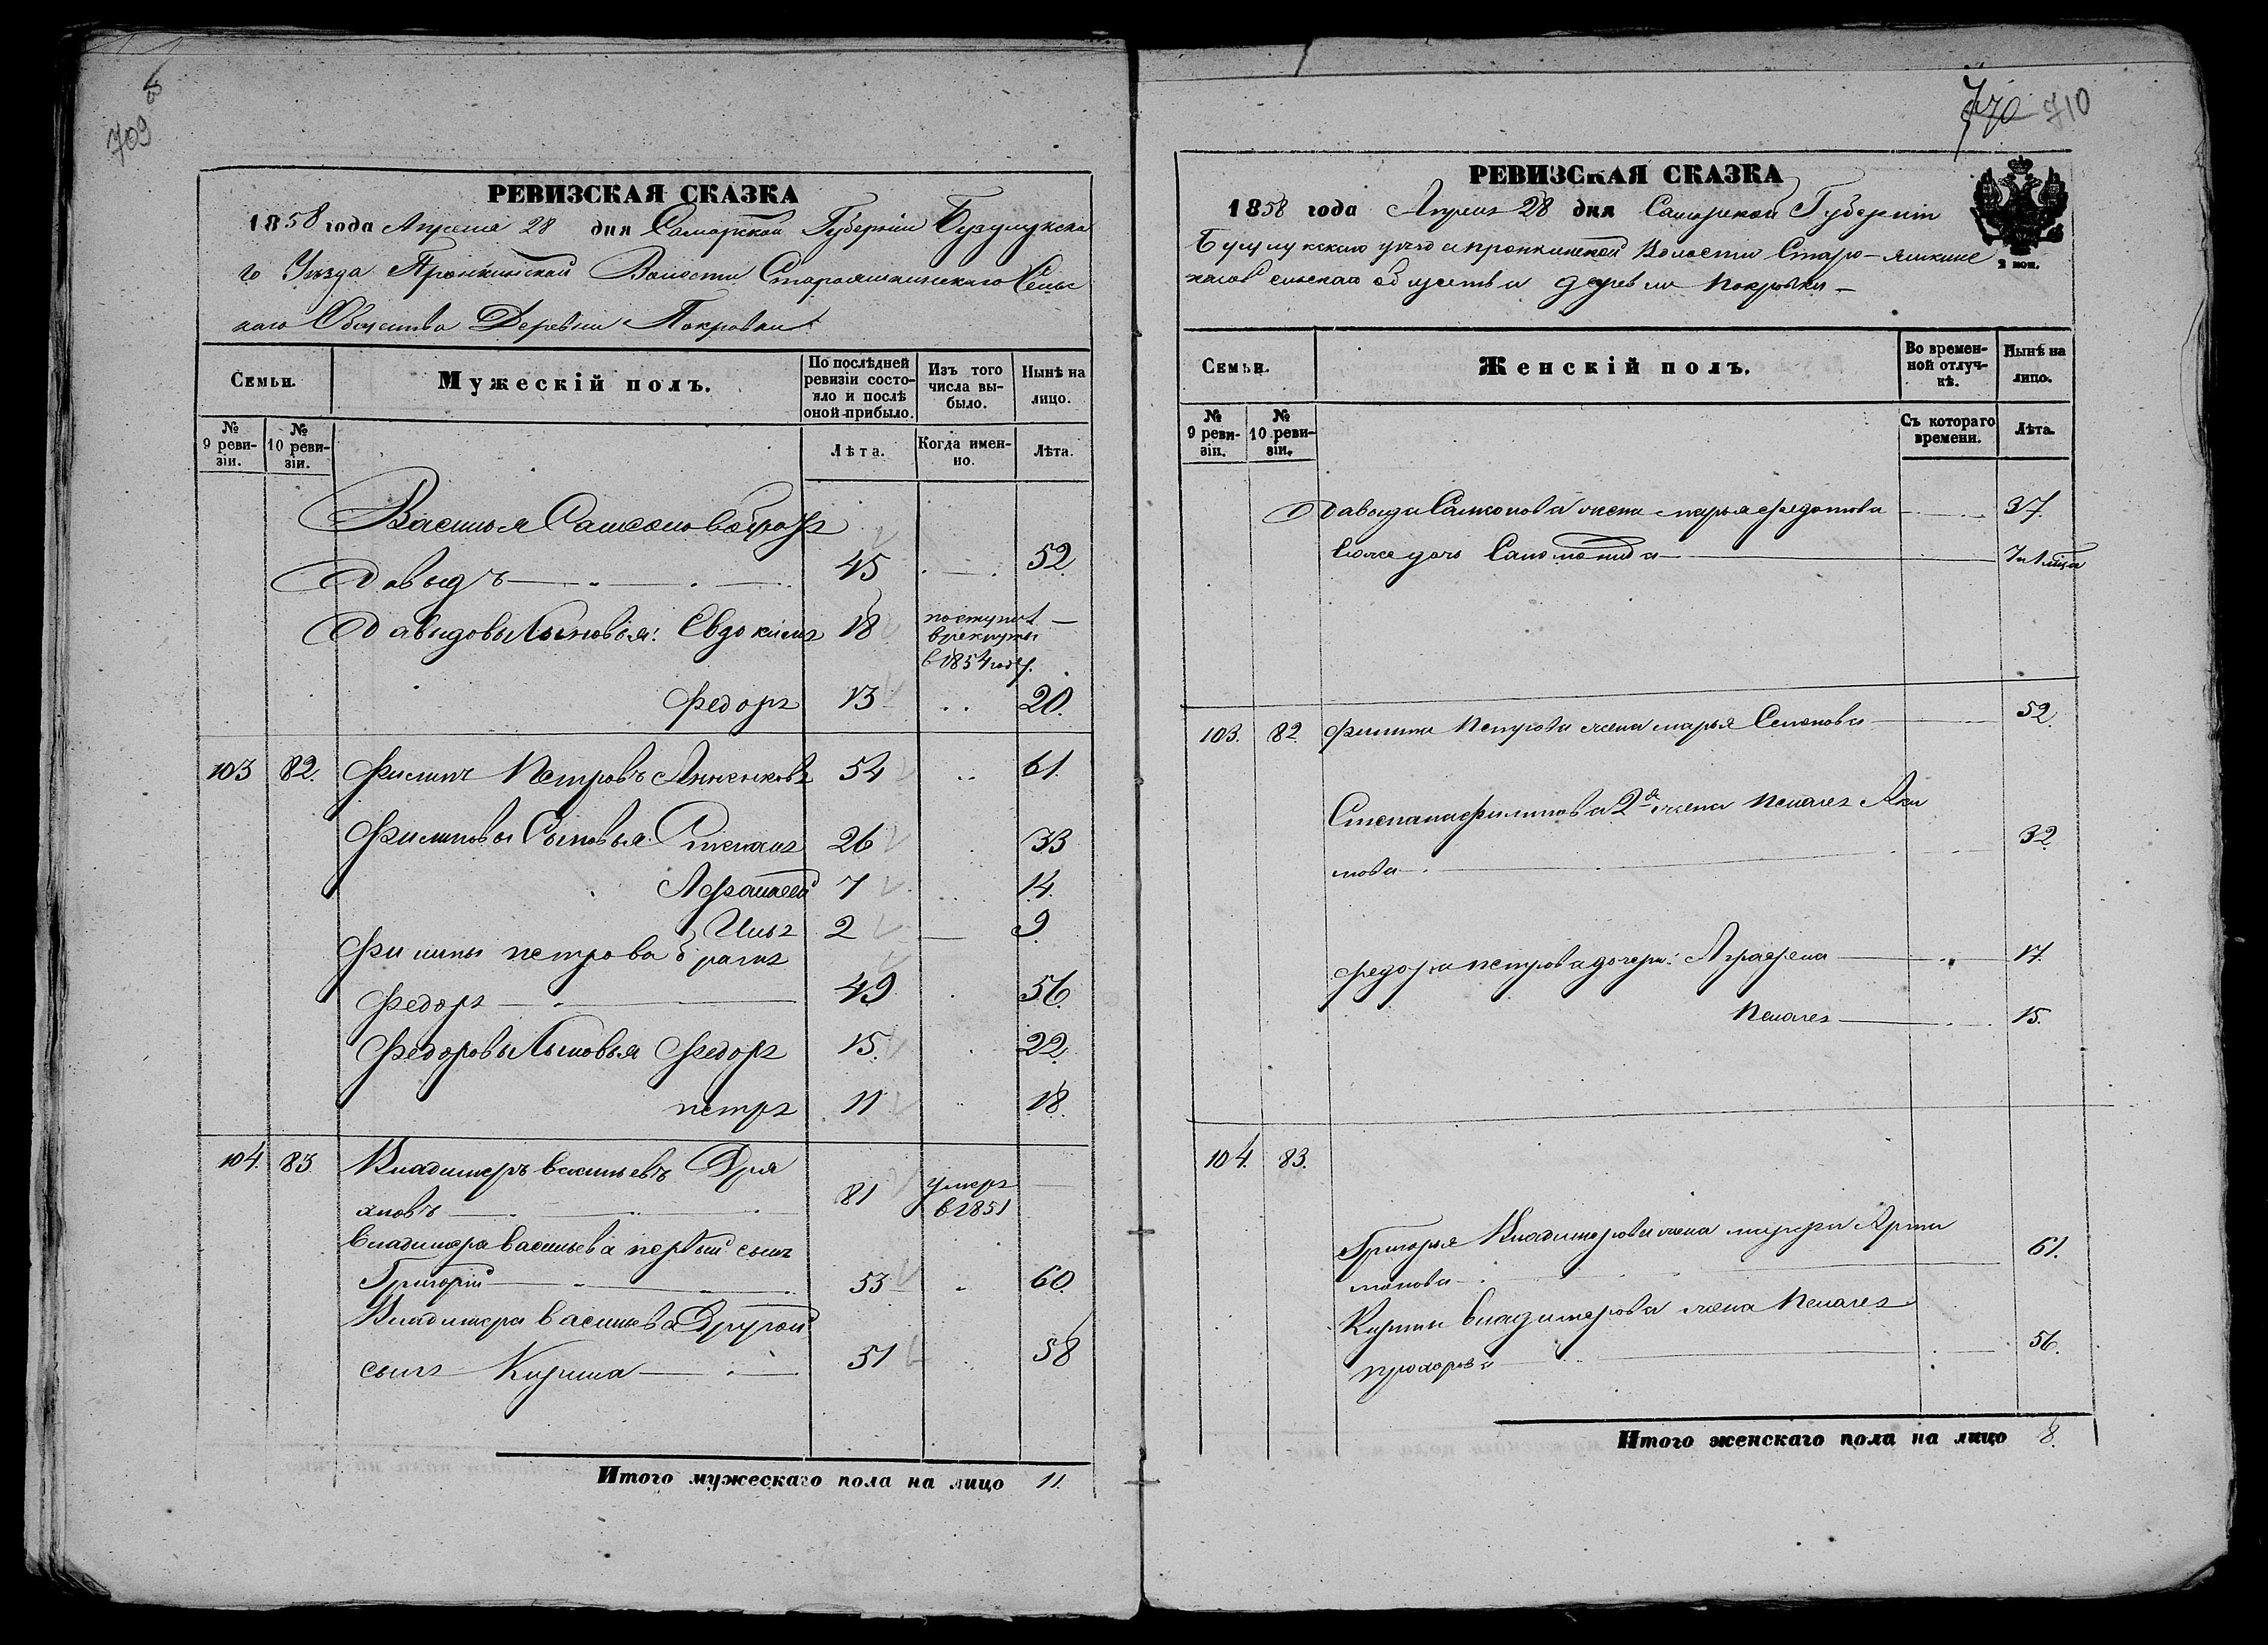 709
РЕВИЗСКАЯ СКАЗКА
1858 года Апреля 28 дня Самарской Губерніи Бузулукска
го Уѣзда Пронькинской Волости Сельс
каго Общества Деревни Покровки
Семьи.
Мужескій полъ.
По послѣдней ревизіи состояло и послѣ оной прибыло.
Изъ того числа выбыло.
Нынѣ на лицо.
№ 9 ревизіи.
№ 10 ревизіи.
Лѣта.
Когда именно.
Лѣта.
Василья Самсонова братъ
Давыдъ 45 52.
Давыдовы Сыновья: Евдокимъ 18 поступил в рекруты в 1854 году. —
Федоръ 13 20.
103 82. Филипъ Петровъ Анненковъ 54 61.
Филиповы Сыновья Степанъ 26 33
Афанасей 7 14.
Илья 2 9.
Филипы петрова братъ
Федоръ 49 56.
Федоровы Сыновья Федоръ 15. 22.
петръ 11 18.
104. 83. Владимеръ васильевъ Дря
хловъ 81 умеръ в 1851 —
Владимера васильева первый сынъ
Григорій 53 60.
Владимера васильева Другой
сынъ Кирила 51 58
Итого мужескаго пола на лицо 11.
770 710
РЕВИЗСКАЯ СКАЗКА
2 коп.
1858 года Апреля 28 дня Самарской Губерніи
Бузулукскаго уезда пронкинской Волости Старо-
сельскаго общества деревни покровки —
Семьи.
Женскій полъ.
Во временной отлучкѣ.
Нынѣ на лицо.
№ 9 ревизіи.
№ 10 ревизіи.
Съ котораго времени.
Лѣта.
Давыда Самсонова жена марья федотова 37.
Ево же дочь Саломанида
103. 82. Филипа Петрова жена марья Семенова 52.
Степана филипова 2я жена Пелагея Аки
мова 32
Федора петрова дочери: Аграфена 17.
Пелагея 15.
104. 83.
Григорья Владимерова жена Арта
монова 61.
Кирилы владимерова жена Пелагея
прохорова 56.
Итого женскаго пола на лицо 8.